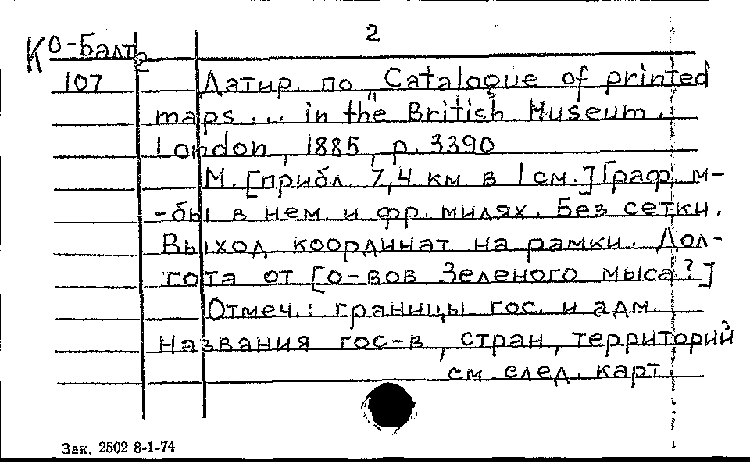 2
К О-Балт
2
107 Датир. по "Catalogue of printed
maps... in the British Museum.
London, 1885, p. 3390
М. [прибл. 7,4 км в 1 см.] Граф. м-
-бы в нем. и фр. милях. Без сетки.
Выход координат на рамки. Дол-
гота от [о-вов Зеленого мыса?]
Отмеч.: границы гос. и адм.
Названия гос-в, стран, территорий
см. след. карт.
Зак. 2502 8-1-74